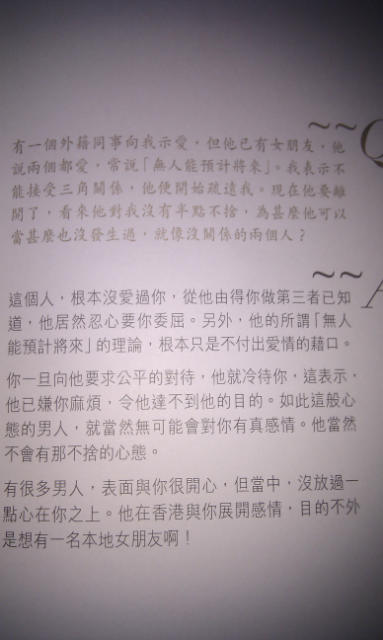 ~~Q
有一個外籍同事向我示愛，但他已有女朋友，他
說兩個都愛，常說「無人能預計將來」。我表示不
能接受三角關係，他便開始疏遠我。現在他要離
開了，看來他對我沒有半點不捨，為甚麼他可以
當甚麼也沒發生過，就像沒關係的兩個人？
~~A
這個人，根本沒愛過你，從他由得你做第三者已知
道，他居然忍心要你委屈。另外，他的所謂「無人
能預計將來」的理論，根本只是不付出愛情的藉口。
你一旦向他要求公平的對待，他就冷待你，這表示，
他已嫌你麻煩，令他達不到他的目的。如此這般心
態的男人，就當然無可能會對你有真感情。他當然
不會有那不捨的心態。
有很多男人，表面與你很開心，但當中，沒放過一
點心在你之上。他在香港與你展開感情，目的不外
是想有一名本地女朋友啊！